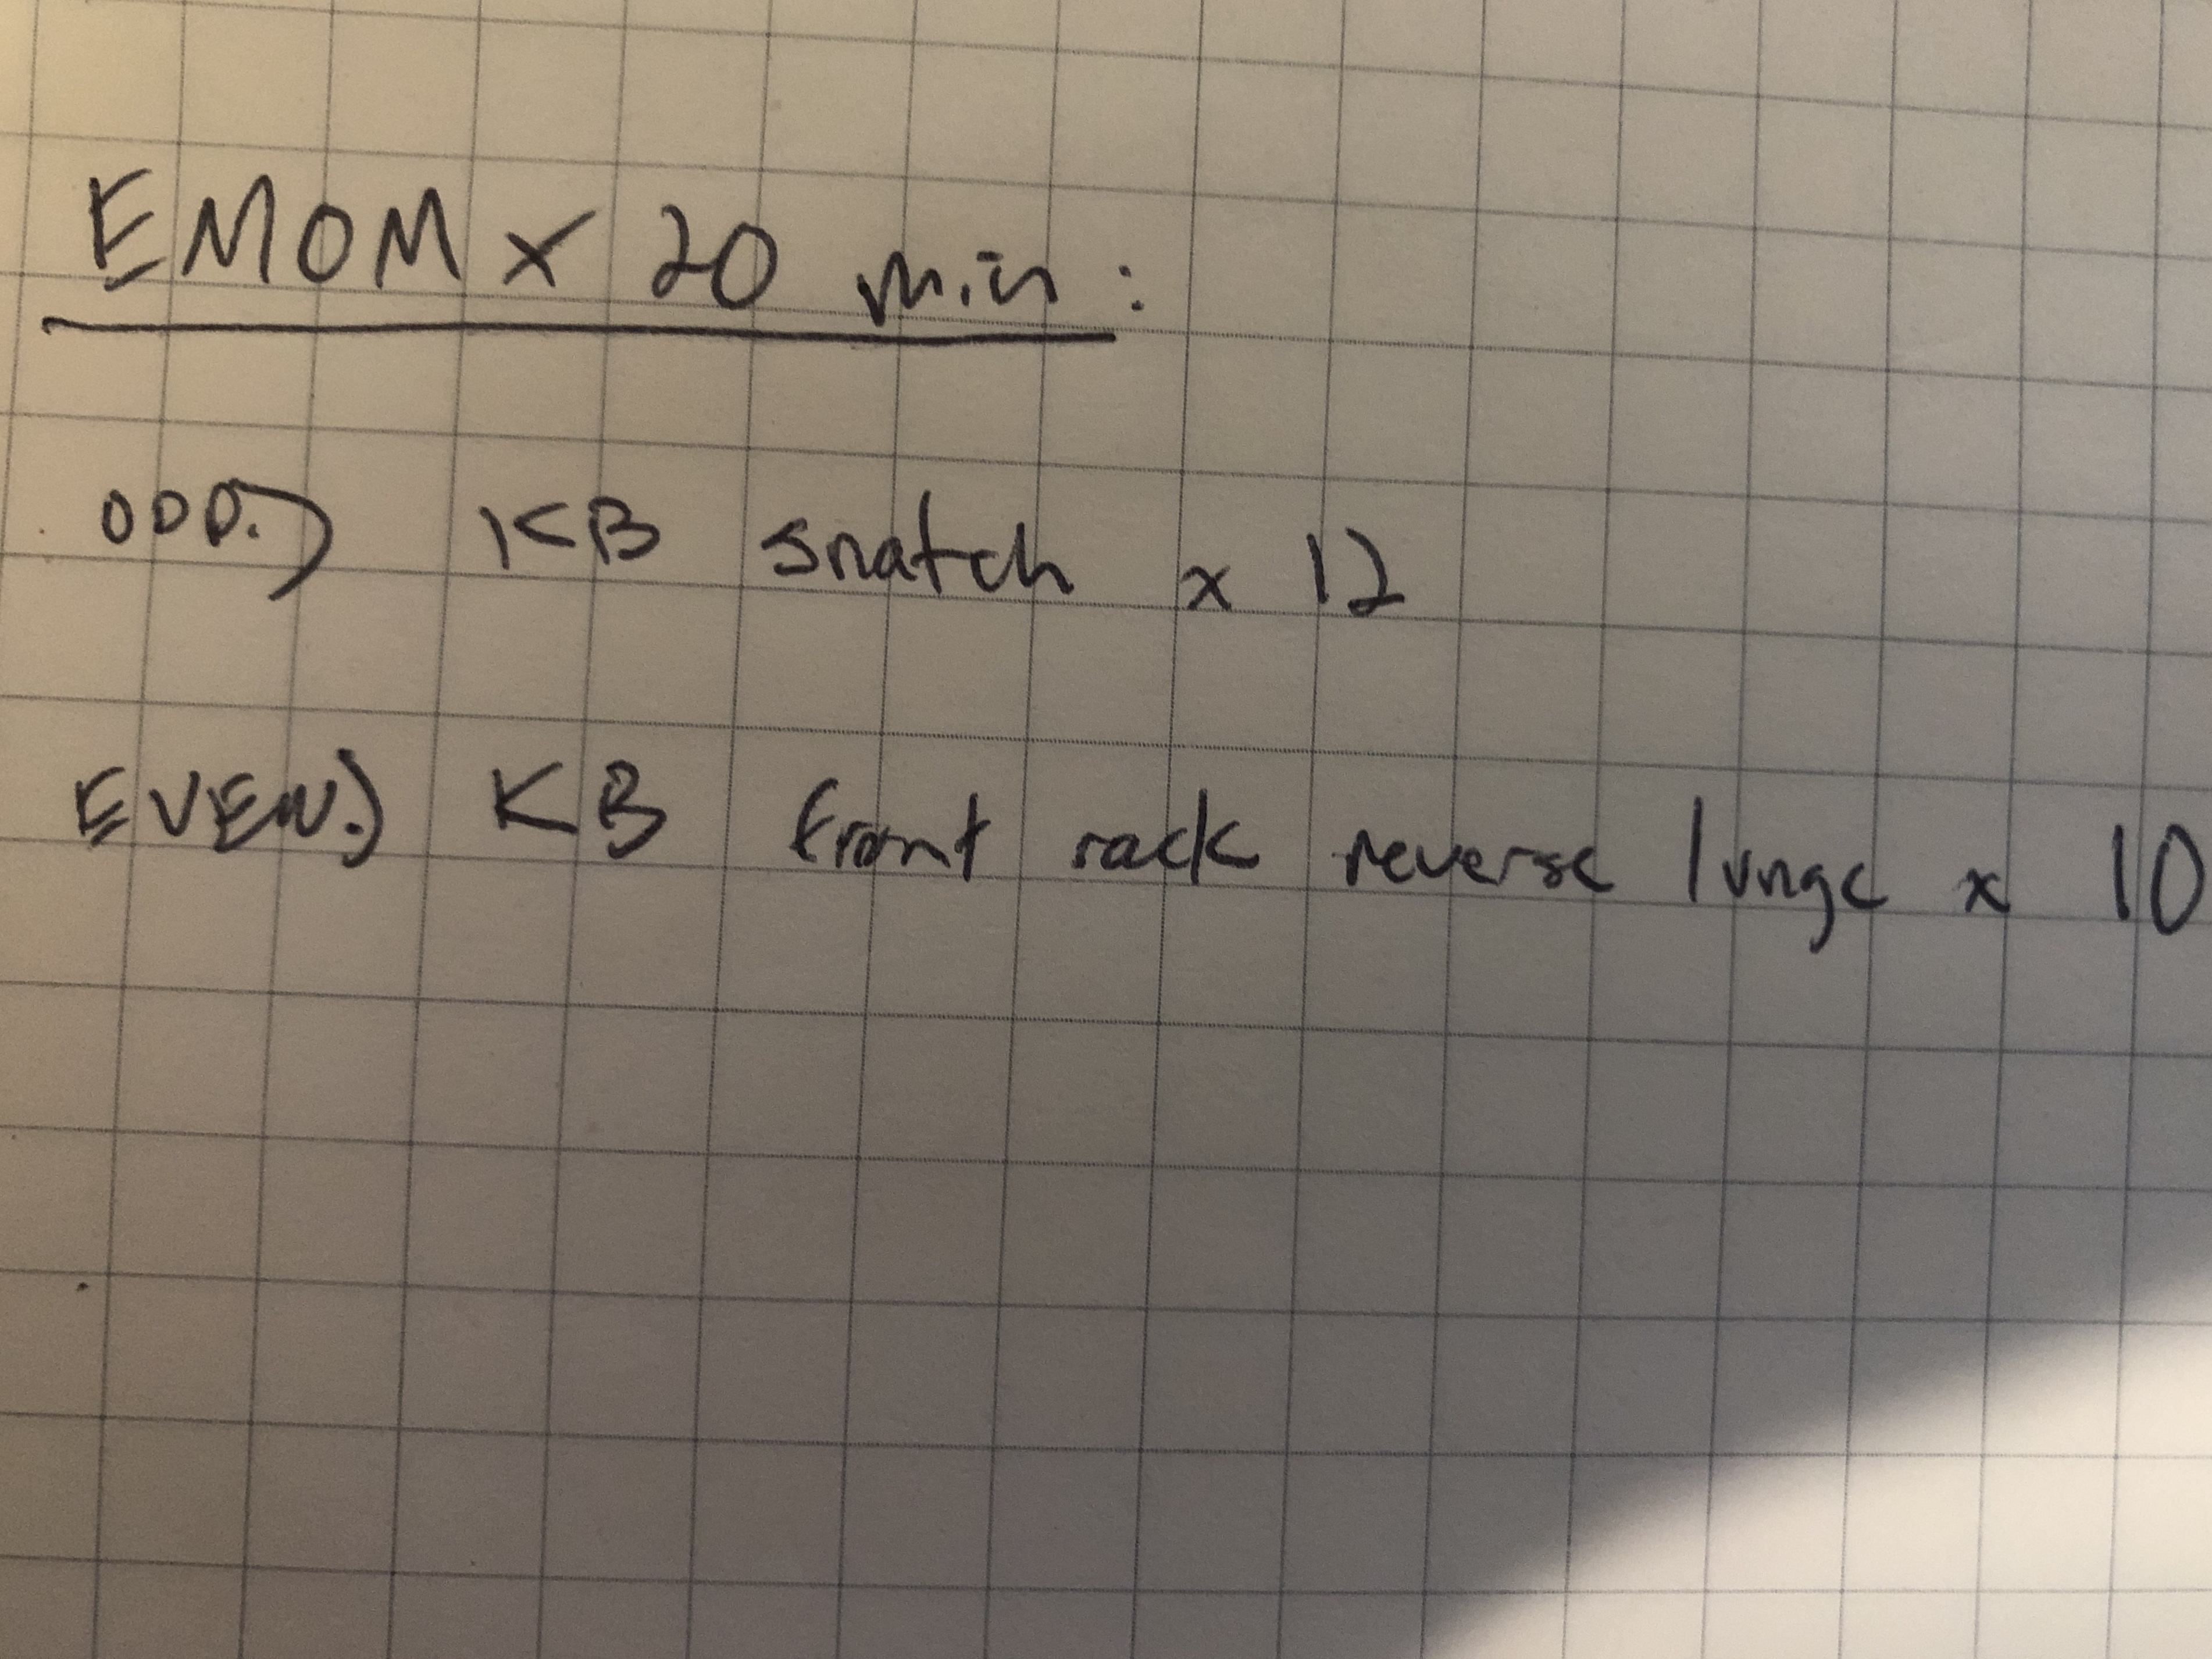 EMOM x 20 min:
ODD.) KB snatch x 12
EVEN.) KB front rack reverse lunge x 10